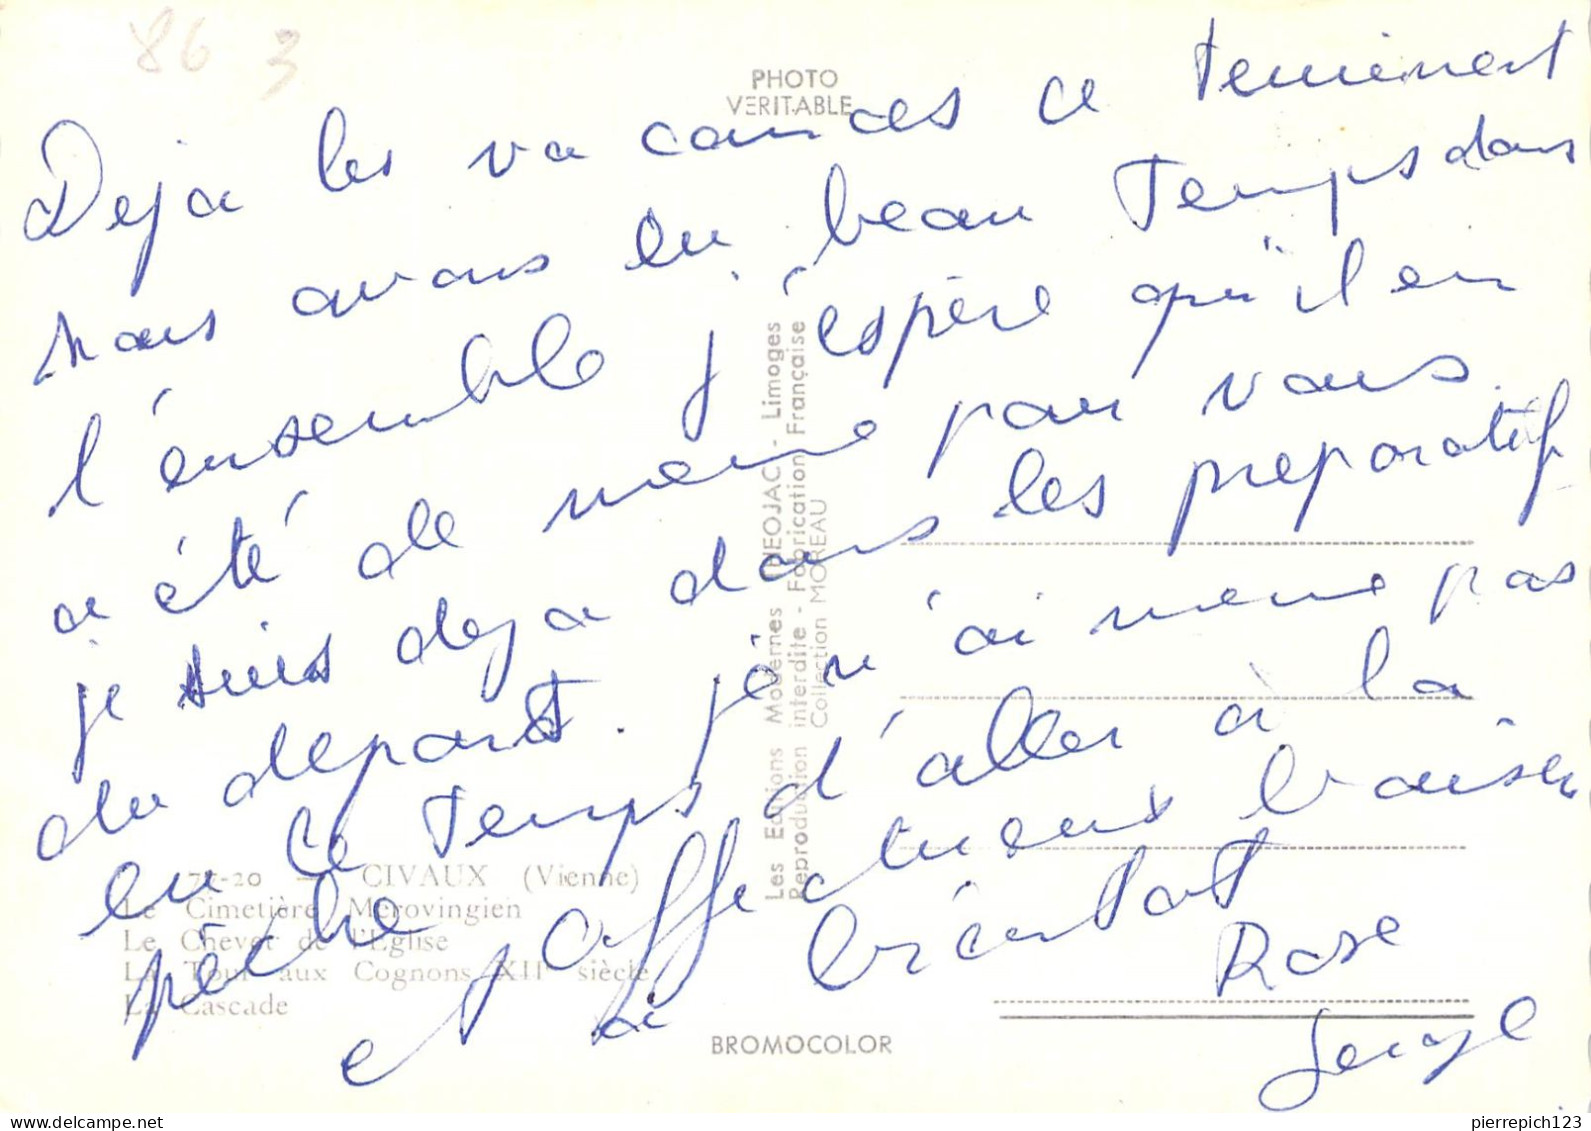 86 3
PHOTO
VERITABLE
Deja les vacances ce terminent
nous avons eu beau temps dans
l'ensemble j'éspère qu'il en
a été de meme pour vous.
je suis deja dans les preparatif
du depart. je n'ai meme pas
eu le temps d'aller à la
pêche affectueux baiser
et
à bientot
Rose
Les Editions Modernes THEOJAC - Limoges
Reproduction interdite - Fabrication Française
Collection MOREAU
CIVAUX (Vienne)
Le Cimetière Mérovingien
Le Chevet de l'Eglise
La Tour aux Cognons XIIe siècle
La Cascade
BROMOCOLOR
pierrepich123